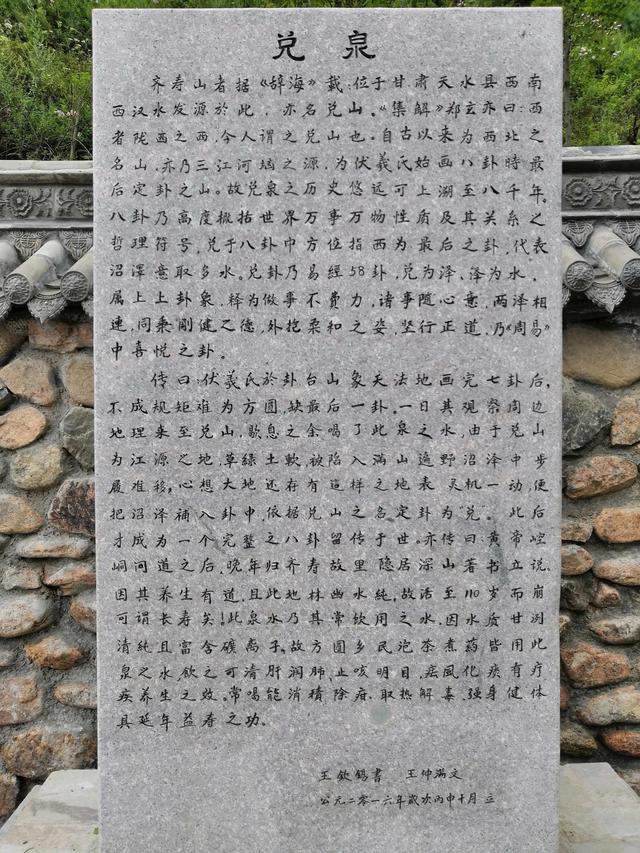 兑泉
齐寿山者据《辞海》载:位于甘肃天水县西南
西汉水发源於此,亦名兑山。《集解》郑玄亦曰:西
者陇西之西,今人谓之兑山也。自古以来为西北之
名山,亦乃三江河堖之源,为伏羲氏始画八卦時最
后定卦之山。故兑泉之历史悠远可上溯至八千年。
八卦乃高度概括世界万事万物性质及其关系之
哲理符号,兑于八卦中方位指西为最后之卦,代表
沼澤意取多水。兑卦乃易經58卦,兑为泽、泽为水,
属上上卦象,释为做事不费力,诸事随心意,两泽相
連,同秉刚健之德,外抱柔和之姿,坚行正道,乃《周易》
中喜悦之卦。
传曰:伏羲氏於卦台山象天法地画完七卦后,
不成规矩难为方圆,缺最后一卦。一日其观察周边
地理来至兑山,歇息之余喝了此泉之水,由于兑山
为江源之地,草绿土軟,被陷入满山遍野沼泽中步
履难移,心想大地还存有這样之地表灵机一动,便
把沼泽補入卦中,依据兑山之名定卦为"兑"。此后
才成为一个完整之八卦留传于世。亦传曰:黄帝崆
峒问道之后,晚年归齐寿故里隐居深山著书立说,
因其养生有道,且此地林幽水純,故活至110岁而崩
可谓长寿矣!此泉水乃其常飲用之水,因水质甘洌
清純且富含礦离子。故方圆乡民泡茶煮药皆用此
泉之水,飲之可清肝润肺、止咳明目,祛風化痰有疗
疾养生之效。常喝能消積除疳、取热解毒、强身健体
具延年益寿之功。
王欽锡書 王仲满文
公元二零一六年歲次丙申十月立